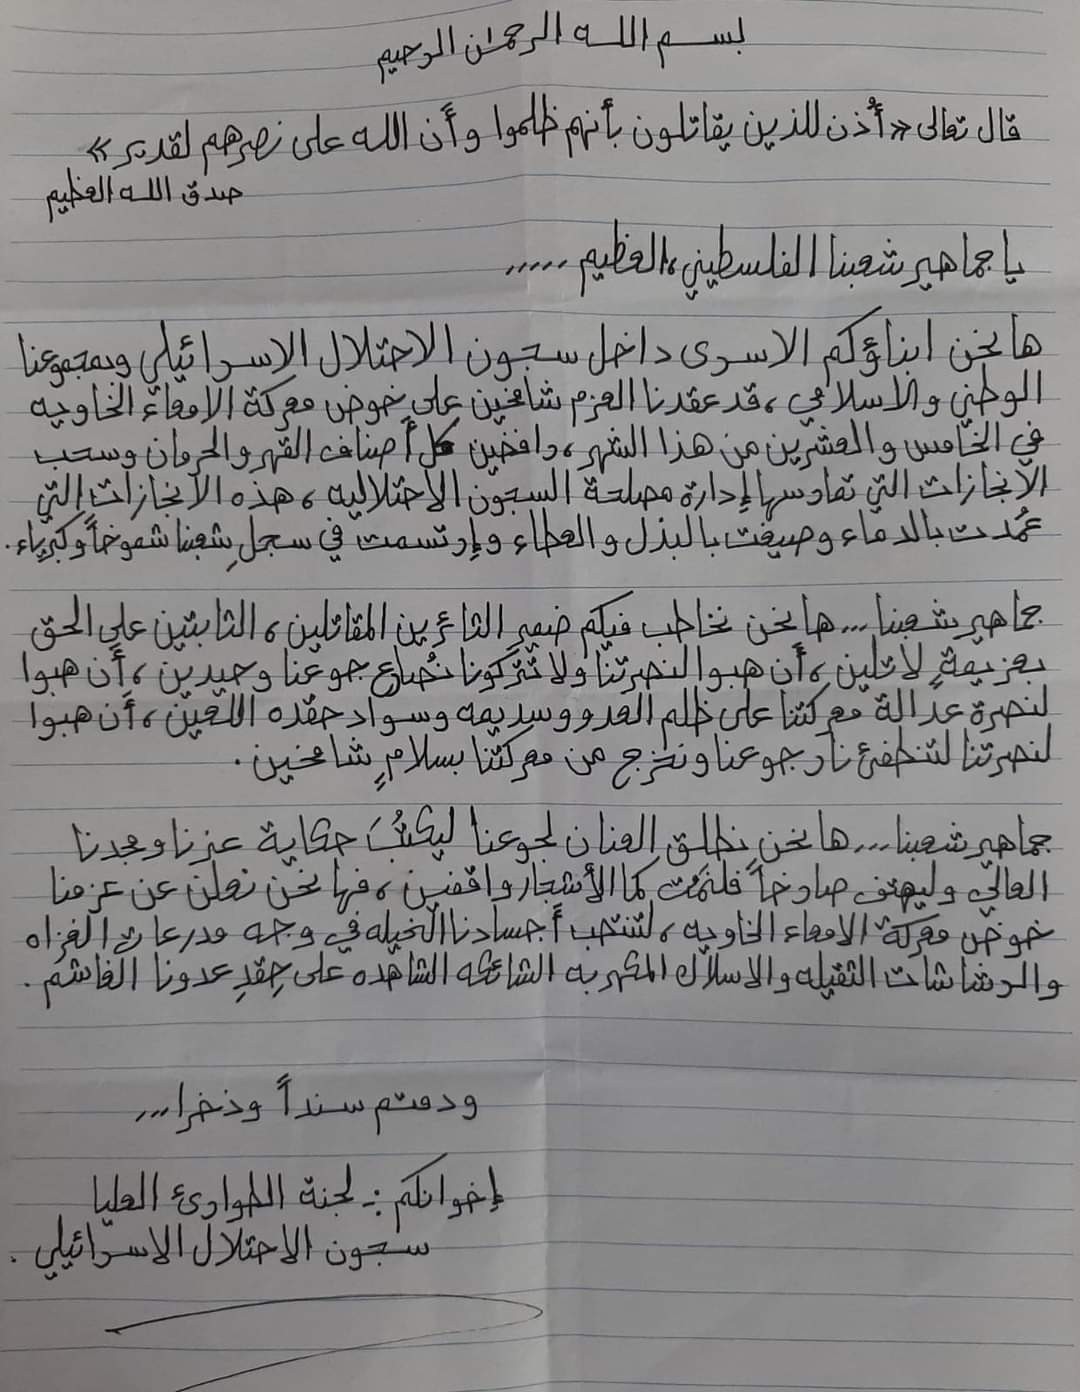 بسم الله الرحمٰن الرحيم
قال تعالى «أُذن للذين يقاتلون بأنهم ظلموا وأن الله على نصرهم لقدير»
صدق الله العظيم
يا جماهير شعبنا الفلسطيني، العظيم .....
ها نحن ابناؤكم الاسرى داخل سجون الاحتلال الاسرائيلي وبمجموعنا
الوطني والاسلامي، قد عقدنا العزم شامخين على خوض معركة الامعاء الخاويه
في الخامس والعشرين من هذا الشهر، رافضين كل أصناف القهر والحرمان وسحب
الانجازات التي تمارسها إدارة مصلحة السجون الاحتلاليه، هذه الانجازات التي
عُمدت بالدماء وصيغت بالبذل والعطاء وإرتسمت في سجلِ شعبنا شموخاً وكبرياء.
جماهير شعبنا... ها نحن نخاطب فيكم ضمير الثائرين المقاتلين، الثابتين على الحق
بعزيمةٍ لا تلين، أن هبوا لنصرتنا ولا تتركونا نُصارع جوعنا وحيدين، أن هبوا
لنصرة عدالة معركتنا على ظلم العدو وسديمه وسواد حقده اللعين، أن هبوا
لنصرتنا لتنطفئ نار جوعنا ونخرج من معركتنا بسلامٍ شامخين.
جماهير شعبنا... ها نحن نطلق العنان لجوعنا ليكتُبَ حكاية عزنا ومجدنا
العالي وليهتف صارخاً فلنمت كما الأشجار واقفين، فها نحن نعلن عن عزمنا
خوض معركة الامعاء الخاويه، لتنتصب أجسادنا النحيله في وجه مدرعات الغزاه
والرشاشات الثقيله والاسلاك المكهربه الشائكه الشاهده على حِقدِ عدونا الغاشم.
ودمتم سنداً وذخرا...
إخوانكم :- لجنة الطوارئ العليا
سجون الاحتلال الاسرائيلي.